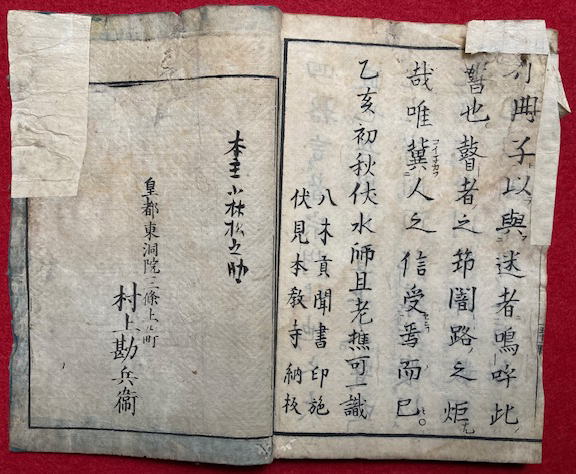 冊子以與迷者鳴呼此
書也瞽者之筇闇路之炬
哉唯冀人之信受焉而已。
乙亥初秋伏水師且老樵可一識
八木貢聞書印施
伏見本教寺納板
本主小林松之助
皇都東洞院三條上ル町
村上勘兵衛